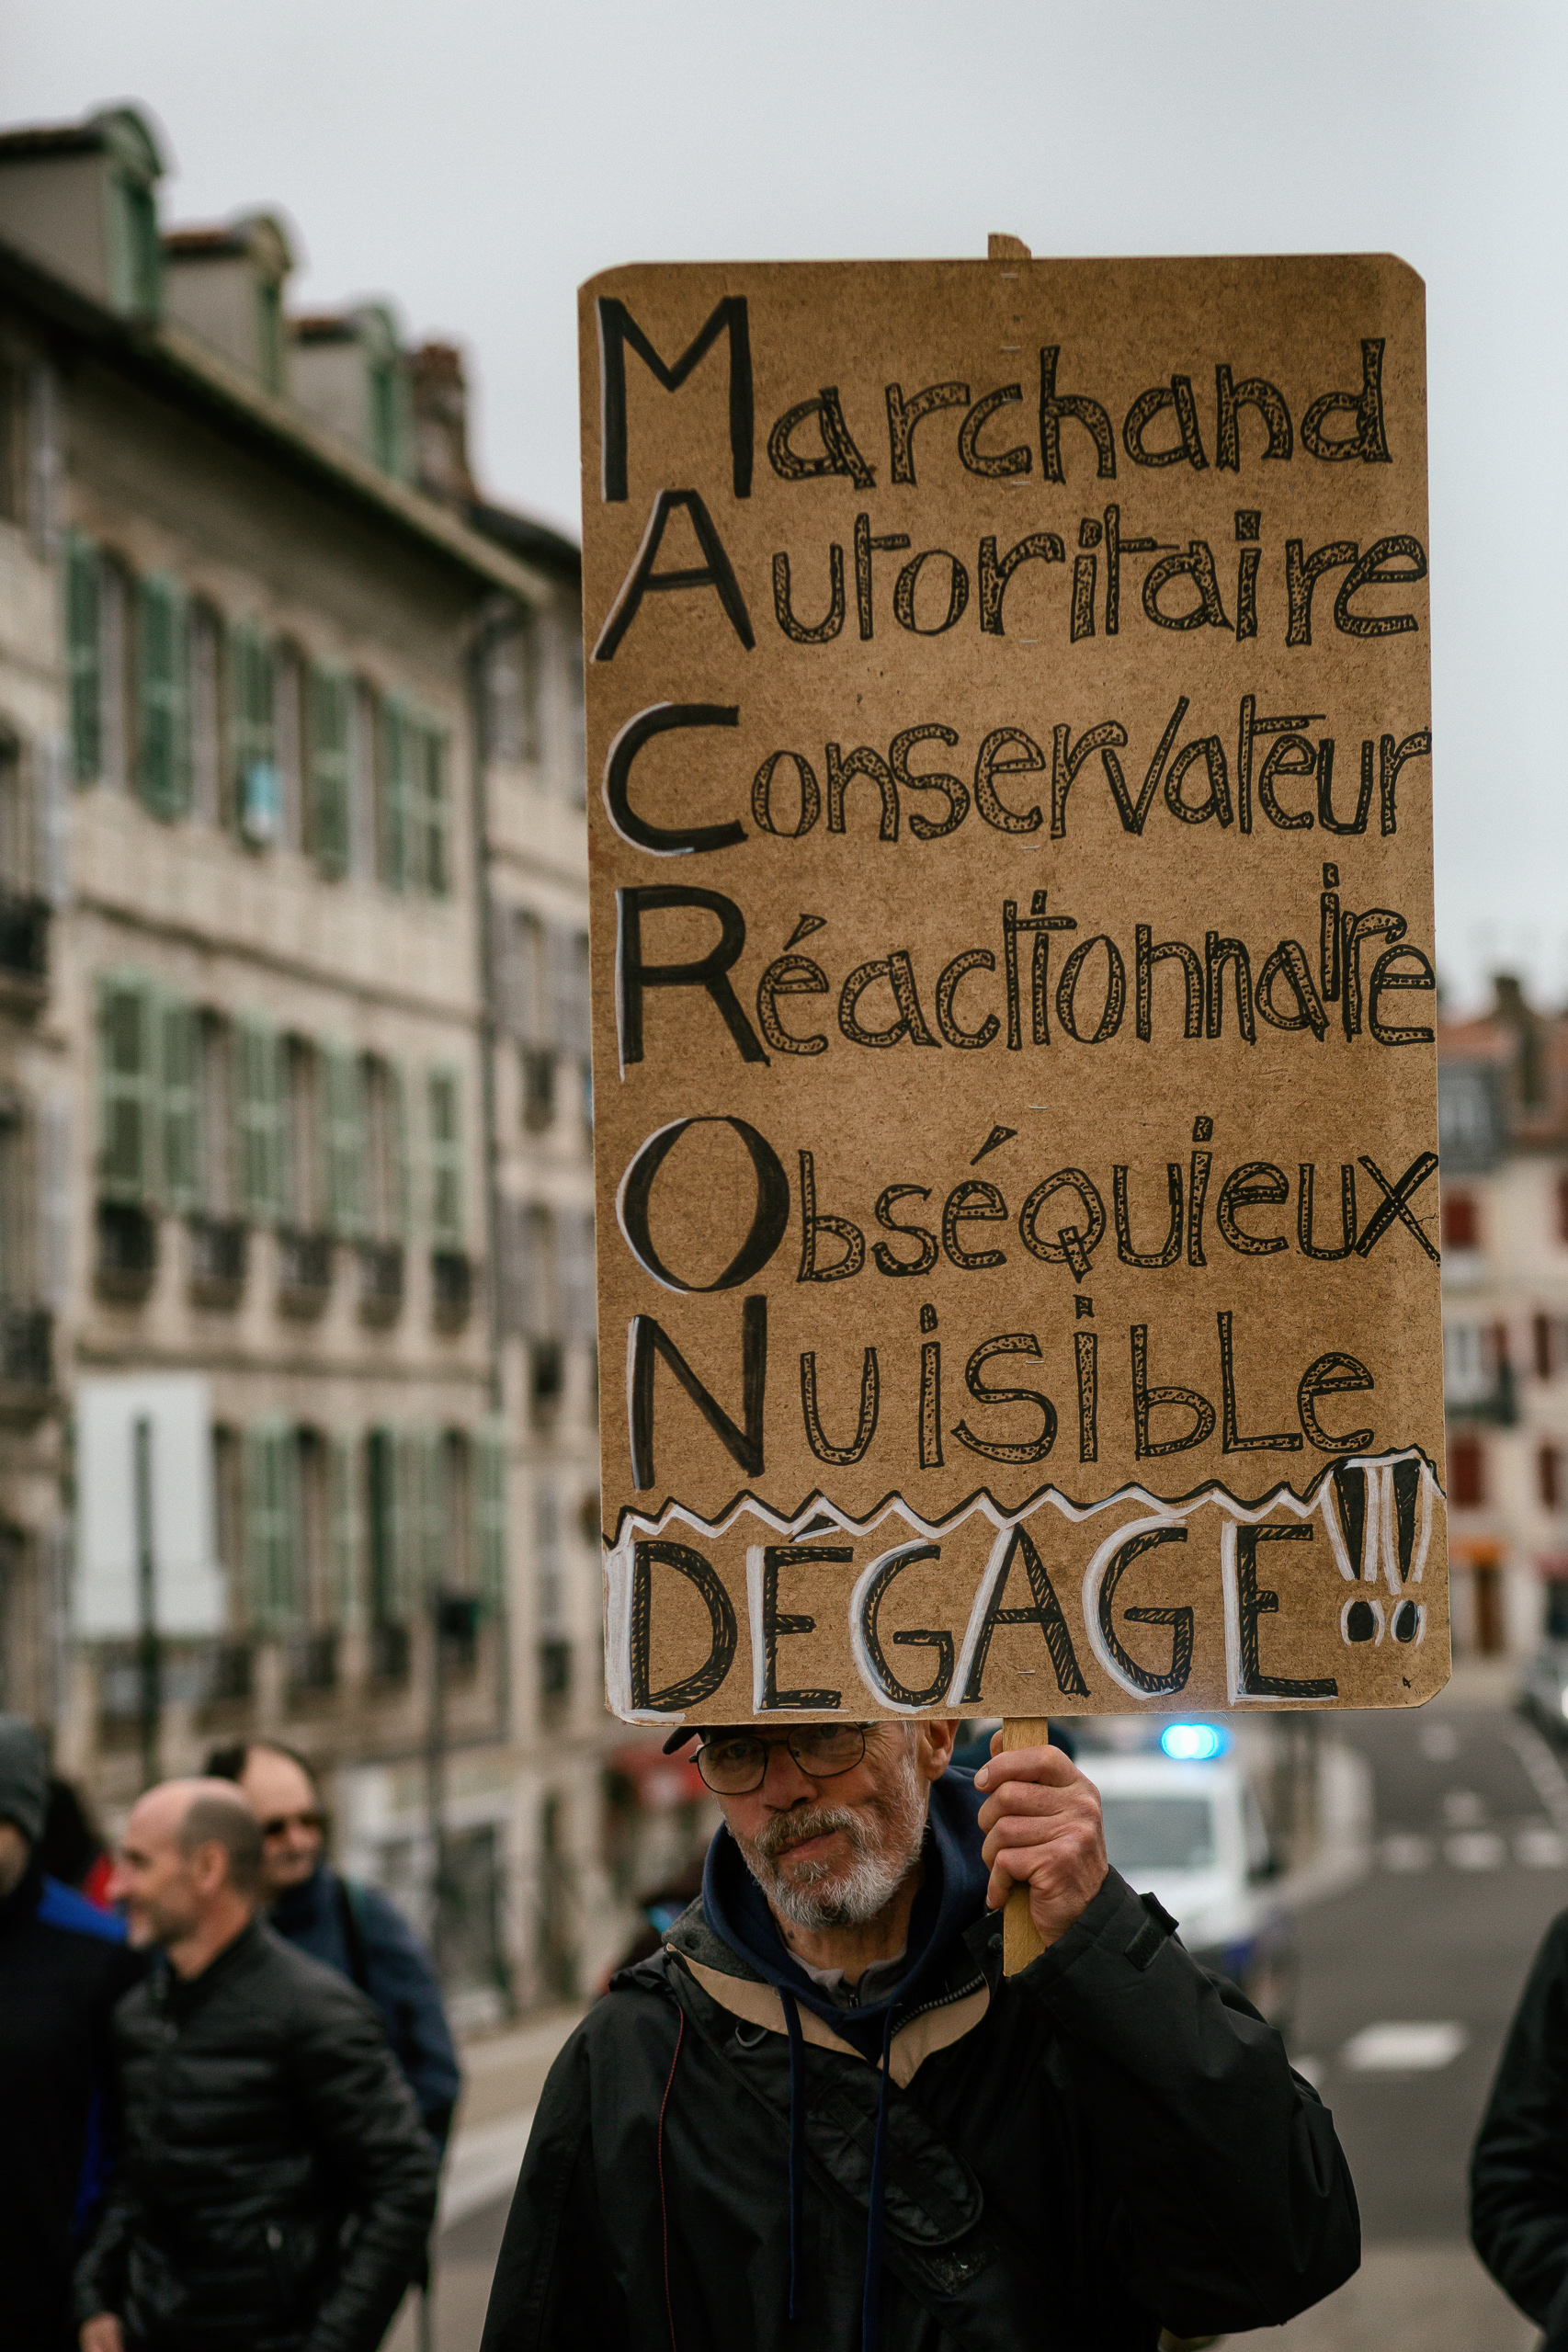 Marchand
Autoritaire
Conservateur
Réactionnaire
Obséquieux
Nuisible
DÉGAGE!!